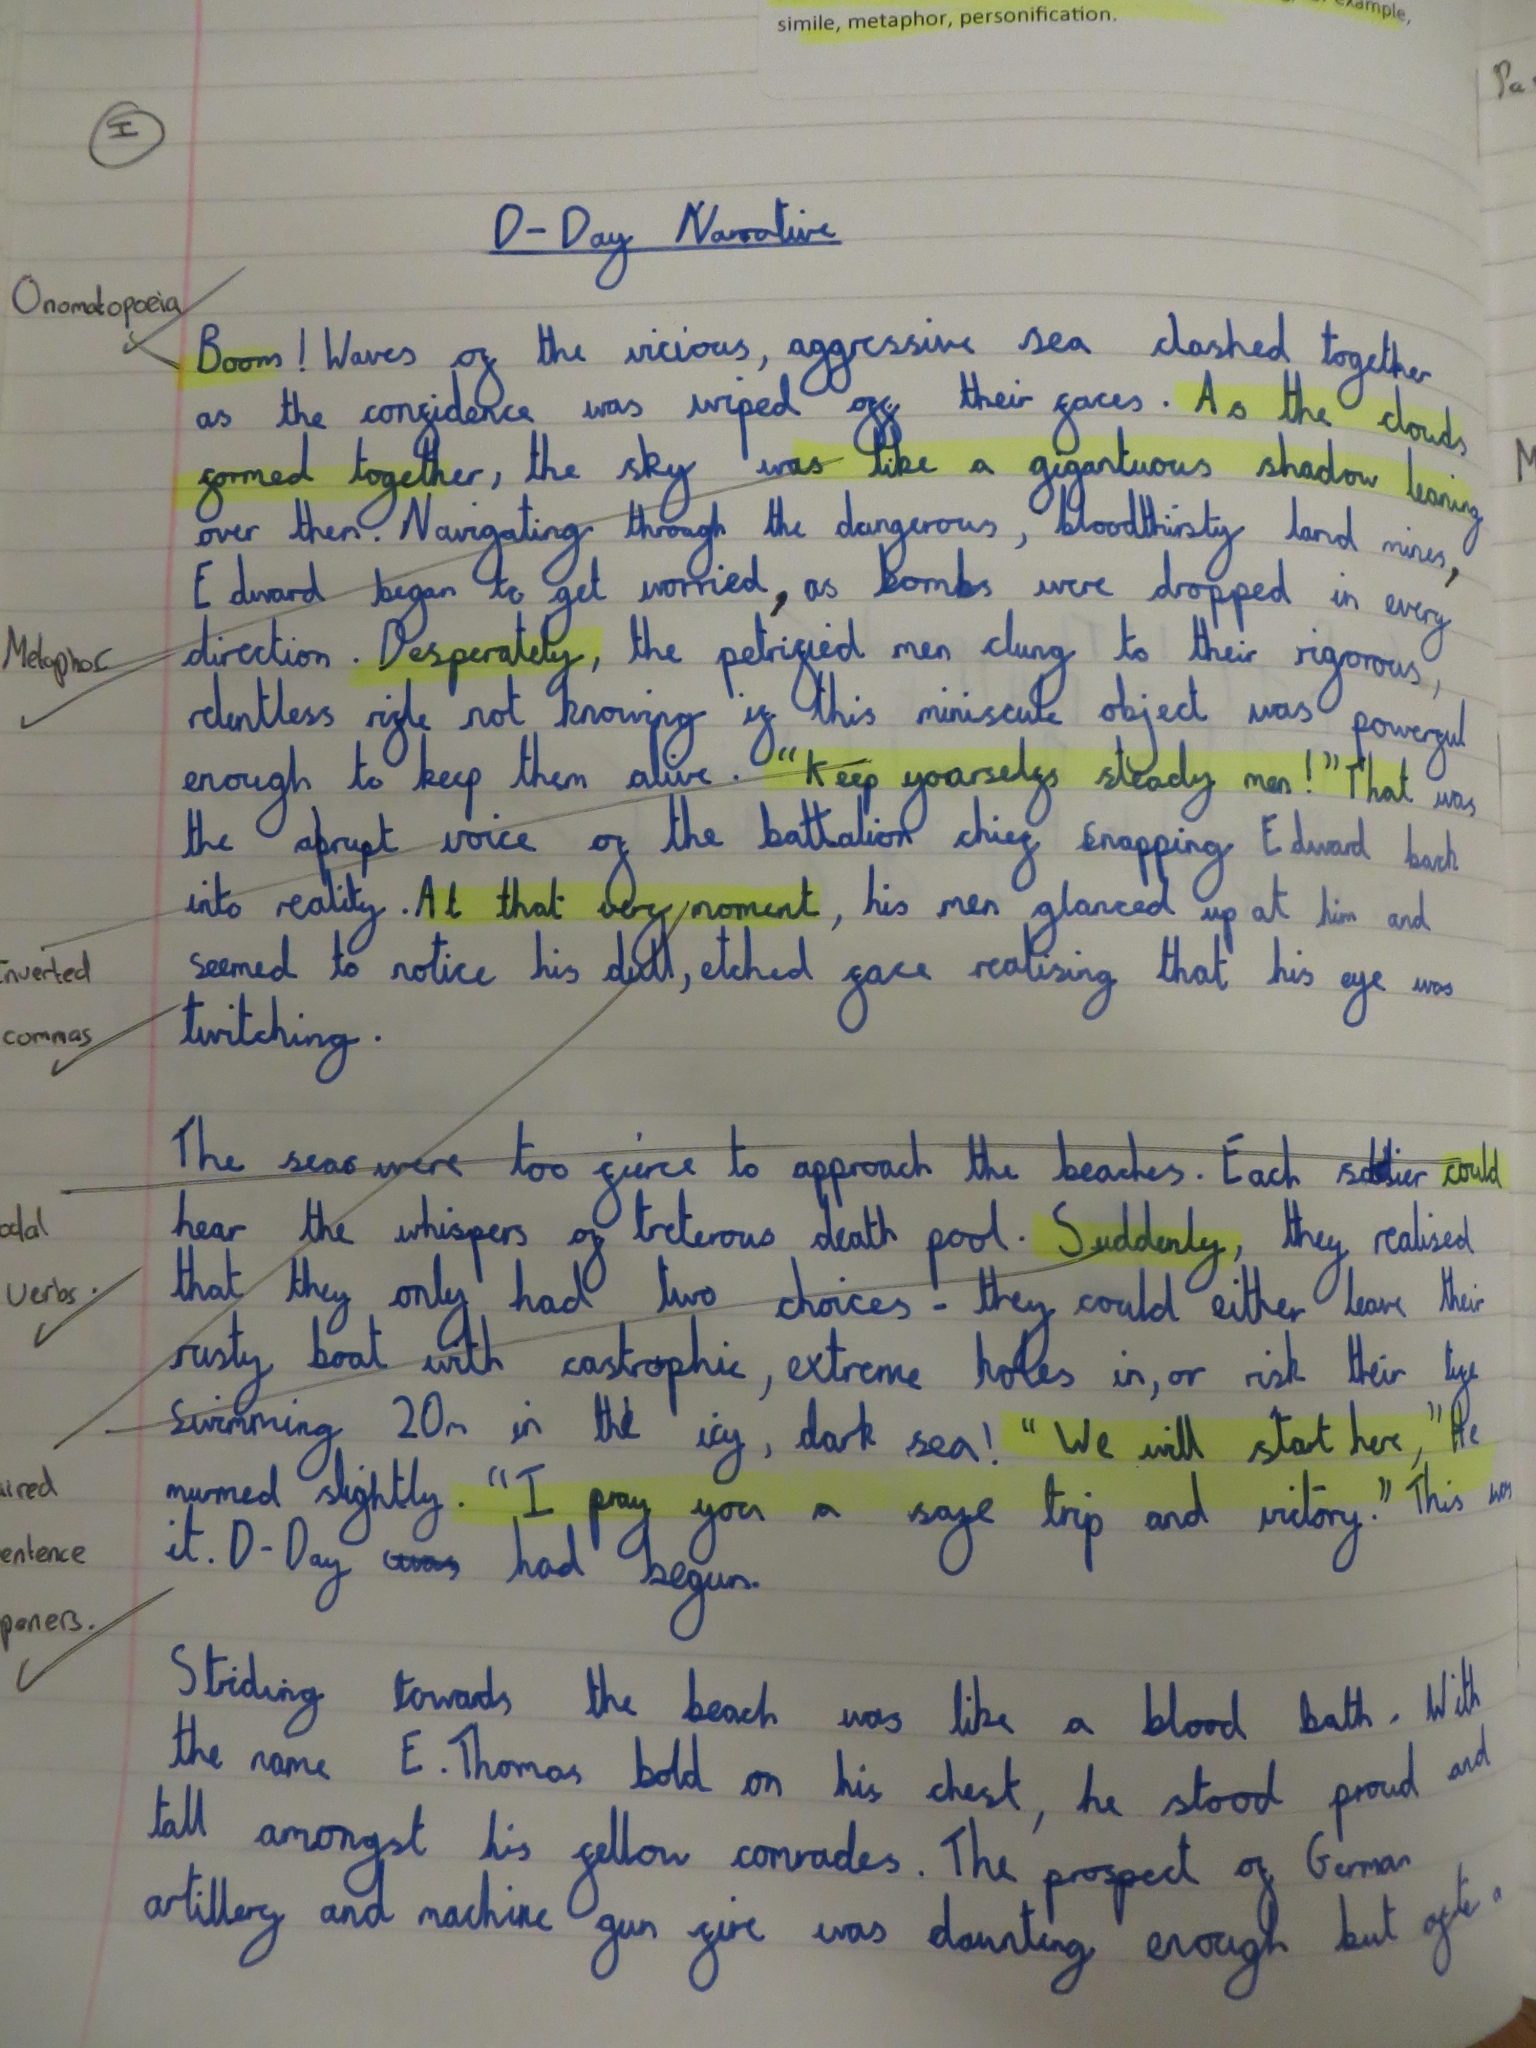 example,
simile, metaphor, personification.
Pa
I
D-Day Narrative
Onomatopoeia
Boom! Waves of the vicious, aggressive sea clashed together
as the confidence was wiped off their faces. As the clouds
M
formed together, the sky was like a gigantuous shadow leaning
over them. Navigating through the dangerous, bloodthirsty land mines,
Edward began to get worried, as bombs were dropped in every
Metaphor
direction. Desperately, the petrified men clung to their rigorous,
relentless rifle not knowing if this miniscule object was powerful
enough to keep them alive. "Keep yourselfs steady men!" That was
the abrupt voice of the battalion chief snapping Edward back
into reality. At that very moment, his men glanced up at him and
nverted
seemed to notice his dull, etched face realising that his eye was
commas
twitching.
The seas were too fierce to approach the beaches. Each soldier could
odal
hear the whispers of treterous death pool. Suddenly, they realised
verbs.
that they only had two choices - they could either leave their
rusty boat with castrophic, extreme holes in, or risk their life
swimming 20m in the icy, dark sea! "We will start here," He
ired
murmed slightly. "I pray you a safe trip and victory." This was
entence
it. D-Day had begun.
peners.
Striding towards the beach was like a blood bath. With
the name E. Thomas bold on his chest, he stood proud and
tall amongst his fellow comrades. The prospect of German
artillery and machine gun fire was daunting enough but after a